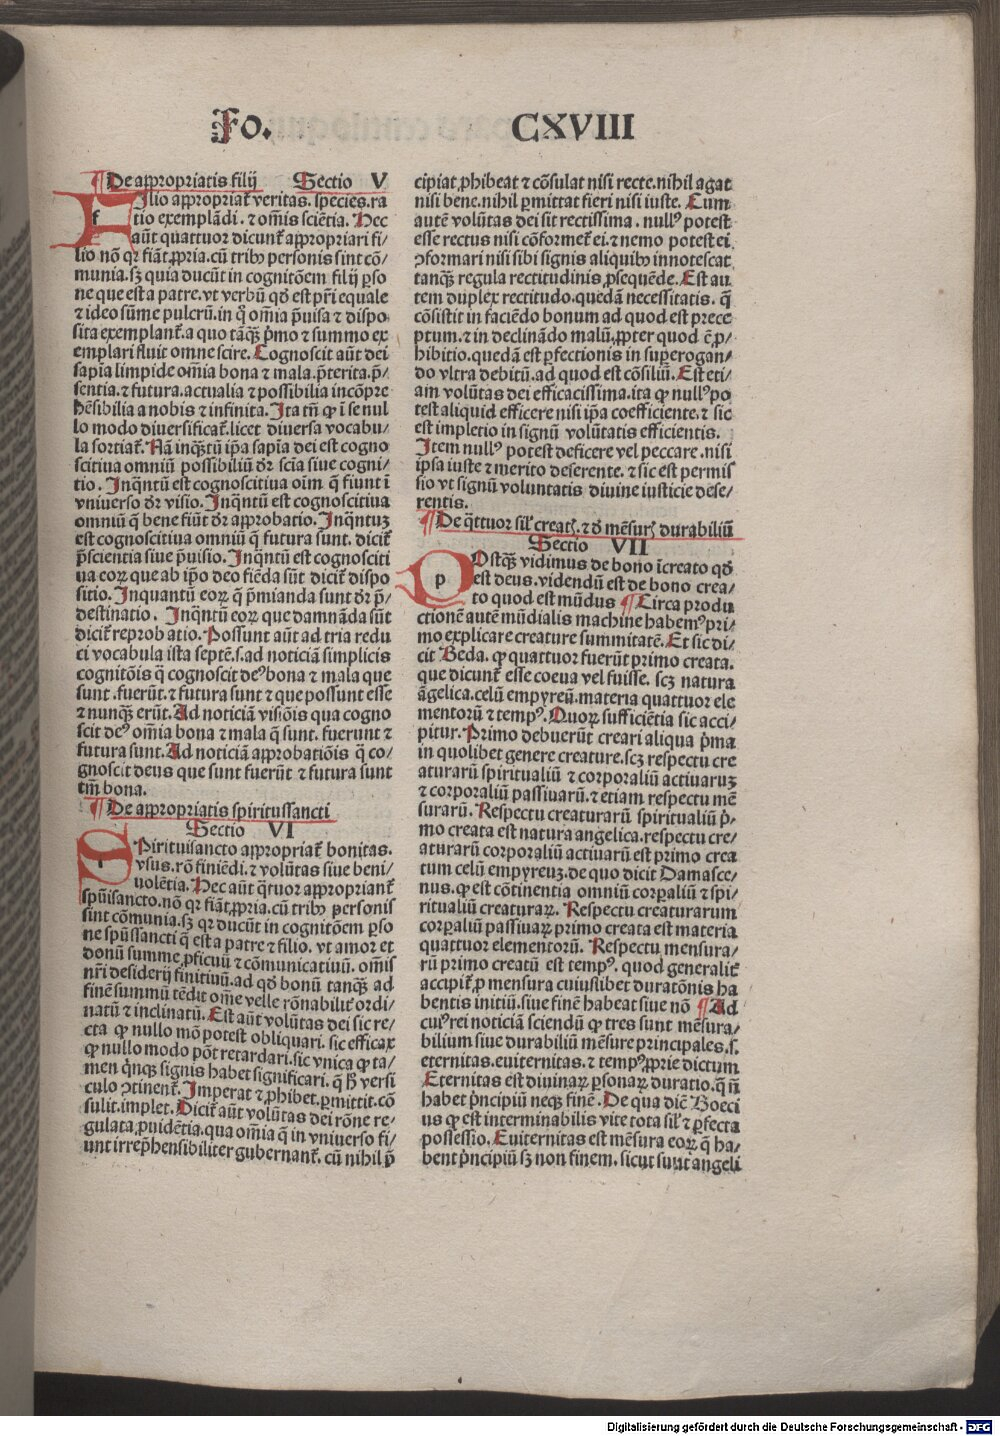 Fo. CXVIII
¶ De appropriatis filij Sectio V
Filio appropriat᷑ veritas. species. ra
tio exemplãdi. ⁊ om̃is sciẽtia. Hec
aũt quattuor dicunt᷑ appropriari fi-
lio nõ qꝛ fiãt ꝓpria. cũ tribꝰ personis sint cõ/
munia. sꝫ quia ducũt in cognitõem filij ꝑso
ne que est a patre. vt verbũ qď est pr̃i equale
⁊ ideo sũme pulcrũ. in q̊ om̃ia p̃uisa ⁊ dispo-
sita exemplant᷑. a quo tãqꝫ p̃mo ⁊ summo ex
emplari fluit omne scire. Cognoscit aũt dei
sapia limpide om̃ia bona ⁊ mala. p̃terita. p̃/
sentia. ⁊ futura. actualia ⁊ possibilia incõpre
hẽsibilia a nobis ⁊ infinita. Ita tñ ꝙ ĩ se nul
lo modo diversificat᷑. licet diversa vocabu/
la sortiat᷑. Nã inqꝫtũ ip̃a sapĩa dei est cogno
scitiua omniũ possibiliũ dr̃ scia siue cogni/
tio. Inq̃ntũ est cognoscitiua oĩm q̃ fiunt ĩ
vniuerso dr̃ visio. Inq̃ntũ est cognoscitiua
omniũ q̃ bene fiũt dr̃ approbatio. Inq̃ntuꝫ
est cognoscitiua omniũ q̃ futura sunt. dicit᷑
p̃scientia siue p̃uisio. Inq̃ntũ est cognosciti
ua eoꝝ que ab ip̃o deo fiẽda sũt dicit᷑ dispo
sitio. Inquantũ eoꝝ q̃ p̃mianda sunt dr̃ p̃/
destinatio. Inq̃ntũ eoꝝ que damnãda sũt
dicit᷑ reprobatio. Possunt aũt ad tria redu
ci vocabula ista septẽ. s. ad noticiã simplicis
cognitõis q̃ cognoscit deꝰ bona ⁊ mala que
sunt. fuerũt. ⁊ futura sunt ⁊ que possunt esse
⁊ nunqꝫ erũt. Ad noticiã visiõis qua cogno
scit deꝰ om̃ia bona ⁊ mala q̃ sunt. fuerunt ⁊
futura sunt. Ad noticiã approbatiõis q̃ co/
gnoscit deus que sunt fuerũt ⁊ futura sunt
tm̃ bona.
¶ De appropriatis spiritussancti
Sectio VI
Spirituisancto appropriat᷑ bonitas.
vsus. rõ finiẽdi. ⁊ volũtas siue beni/
uolẽtia. Hec aũt q̃tuor appropriant᷑
spũisancto. nõ qꝛ fiãt ꝓpria. cũ tribꝰ personis
sint cõmunia. sꝫ qꝛ ducũt in cognitõem ꝑso
ne spũssancti q̃ est a patre ⁊ filio. vt amor et
donũ summe ꝓficuũ ⁊ cõmunicatiuũ. om̃is
nr̃i desiderij finitiuũ. ad qď bonũ tanqꝫ ad
finẽ summũ tẽdit om̃e velle rõnabilit᷑ ordi/
natũ ⁊ inclinatũ. Est aũt volũtas dei sic re/
cta ꝙ nullo mõ potest obliquari. sic efficax
ꝙ nullo modo põt retardari. sic vnica ꝙ ta/
men q̃ncꝫ signis habet significari. q̃ hꝰ versi
culo ꝯtinent᷑. Imperat ⁊ ꝓhibet. ꝑmittit. cõ
sulit. implet. Dicit᷑ aũt volũtas dei rõne re/
gulata ꝓuidẽtia. qua om̃ia q̃ in vniuerso fi/
unt irrep̃hensibiliter gubernant᷑. cũ nihil p̃
cipiat ꝓhibeat ⁊ cõsulat nisi recte. nihil agat
nisi bene. nihil ꝑmittat fieri nisi iuste. Cum
autẽ volũtas dei sit rectissima. nullꝰ potest
esse rectus nisi cõformet᷑ ei. ⁊ nemo potest ei
ꝯformari nisi sibi signis aliquibꝰ innotescat
tanqꝫ regula rectitudinis ꝓsequẽde. Est au
tem duplex rectitudo. quedã necessitatis. q̃
cõsistit in faciẽdo bonum ad quod est prece
ptum. ⁊ in declinãdo malũ, ꝓpter quod ẽ ꝓ/
hibitio. quedã est ꝑfectionis in suꝑerogan/
do vltra debitũ. ad quod est cõsiliũ. Est eti/
am volũtas dei efficacissima. ita ꝙ nullꝰ po
test aliquid efficere nisi ip̃a coefficiente. ⁊ sic
est impletio in signũ volũtatis efficientis.
Item nullꝰ potest deficere vel peccare. nisi
ipsa iuste ⁊ merito deserente. ⁊ sic est permis
sio vt signũ voluntatis diuine iusticie dese/
rentis.
¶ De q̃ttuor sil̃ creatꝭ. ⁊ ď mẽsurꝭ durabiliũ
Sectio VII
Postqꝫ vidimus de bono ĩcreato qď
est deus. videndũ est de bono crea/
to quod est mũdus ¶ Circa produ
ctionẽ autẽ mũdialis machine habemꝰ pri/
mo explicare creature summitatẽ. Et sic di/
cit Beda. ꝙ quattuor fuerũt primo creata.
que dicunt᷑ esse coeua vel fuisse. scꝫ natura
ãgelica. celũ empyreũ. materia quattuor ele
mentorũ ⁊ tempꝰ. Quoꝝ sufficiẽtia sic acci/
pitur. Primo debuerũt creari aliqua p̃ma
in quolibet genere creature. scꝫ respectu cre
aturarũ spiritualiũ ⁊ corporaliũ actiuaruꝫ
⁊ corporaliũ passiuarũ. ⁊ etiam respectu mẽ
surarũ. Respectu creaturarũ spiritualiũ p̃/
mo creata est natura angelica. respectu cre/
aturarũ corporaliũ actiuarũ est primo crea
tum celũ empyreuꝫ. de quo dicit Damasce/
nus. ꝙ est cõtinentia omniũ corꝑaliũ ⁊ spi/
ritualiũ creaturaꝝ. Respectu creaturarum
corꝑaliũ passiuaꝝ primo creata est materia
quattuor elementorũ. Respectu mensura/
rũ primo creatũ est tempꝰ. quod generalit᷑
accipit᷑ ꝓ mensura cuiuslibet duratõnis ha
bentis initiũ. siue finẽ habeat siue nõ ¶ Ad
cuiꝰ rei noticiã sciendũ ꝙ tres sunt mẽsura/
bilium siue durabiliũ mẽsure principales. s.
eternitas. euiternitas. ⁊ tempꝰ ꝓprie dictum
Eternitas est diuinaꝝ ꝑsonaꝝ duratio. q̃ ñ
habet p̃ncipiũ neqꝫ finẽ. De qua diẽ Boeci
us ꝙ est interminabilis vite tota sil̃ ⁊ ꝑfecta
possessio. Euiternitas est mẽsura eoꝝ q̃ ha/
bent p̃ncipiũ sꝫ non finem. sicut sunt angeli
Digitalisierung gefördert durch die Deutsche Forschungsgemeinschaft - DFG